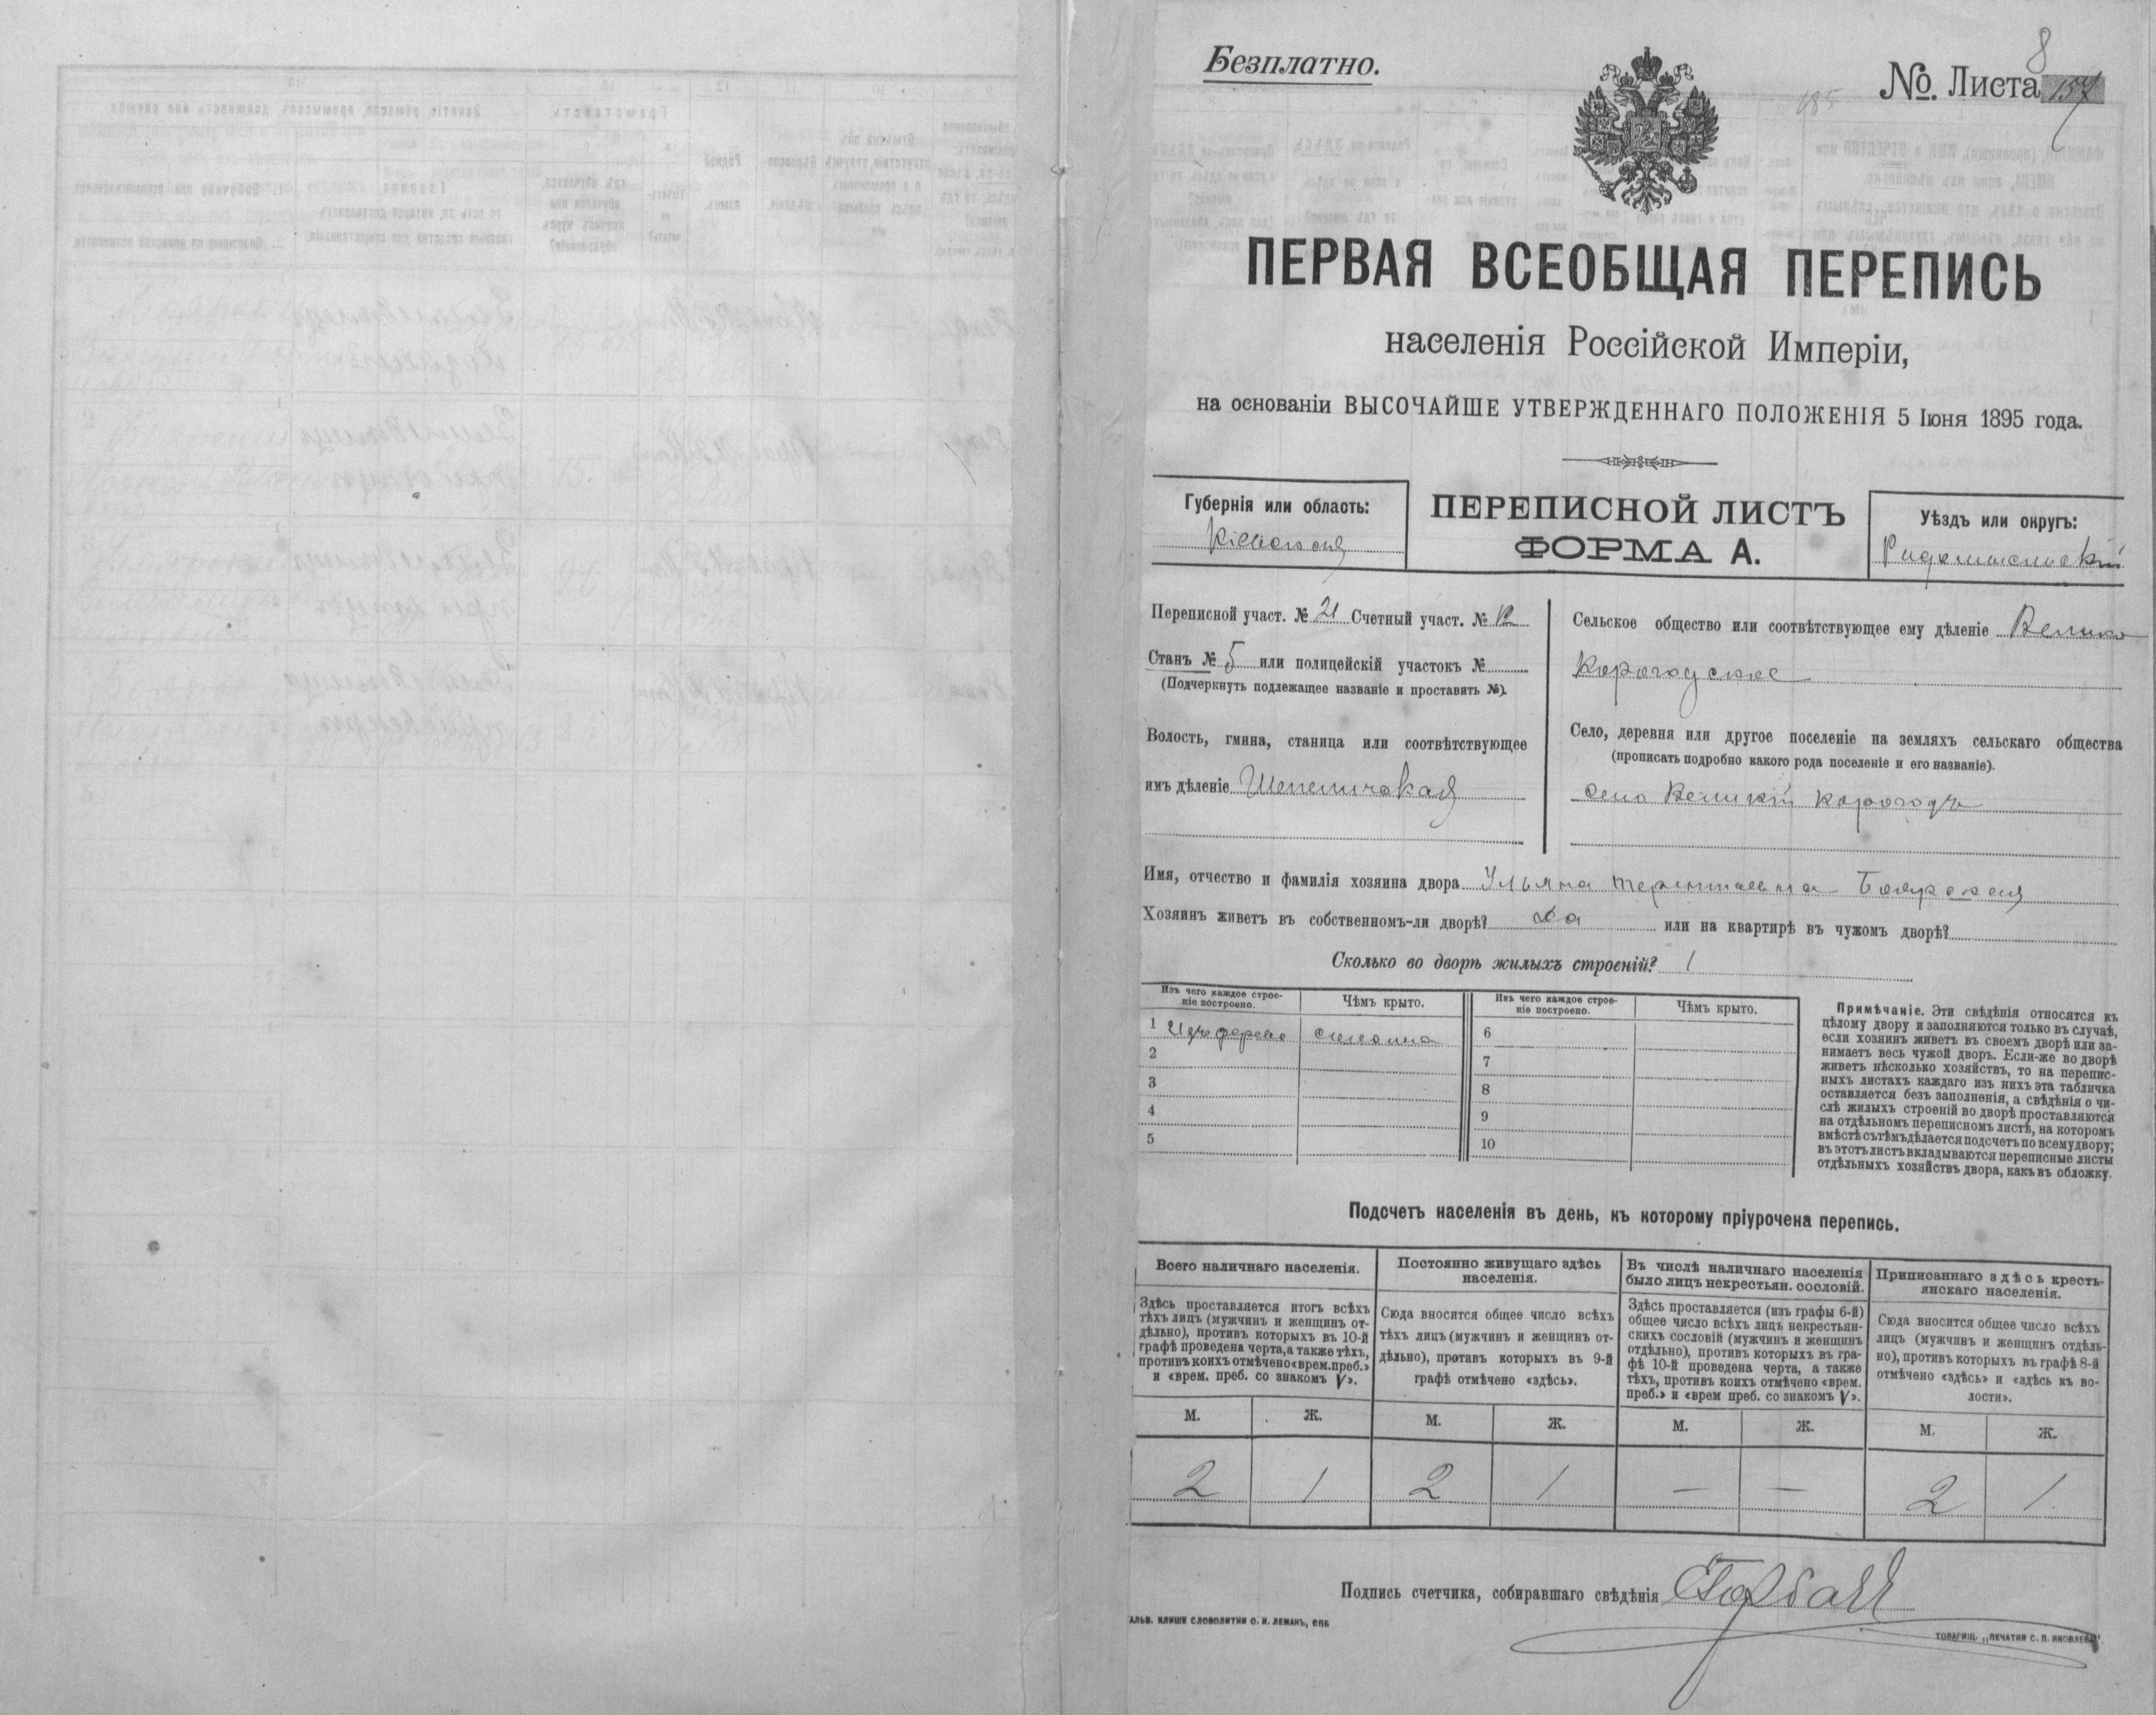 Безплатно.
8
№. Листа 157
185
ПЕРВАЯ ВСЕОБЩАЯ ПЕРЕПИСЬ
населенія Россійской Имперіи,
на основаніи ВЫСОЧАЙШЕ УТВЕРЖДЕННАГО ПОЛОЖЕНІЯ 5 Іюня 1895 года.
Губернія или область:
Кіевская
ПЕРЕПИСНОЙ ЛИСТЪ
ФОРМА А.
Уѣздъ или округъ:
Радомысльскій
Переписной участ. № 21 Счетный участ. № 12
Станъ № 5 или полицейскій участокъ №
(Подчеркнуть подлежащее названіе и проставить №).
Волость, гмина, станица или соотвѣтствующее
имъ дѣленіе Шепеличская
Сельское общество или соотвѣтствующее ему дѣленіе Велико
Корогодское
Село, деревня или другое поселеніе на земляхъ сельскаго общества
(прописать подробно какого рода поселеніе и его названіе).
село Великій Корогодъ
Имя, отчество и фамилія хозяина двора Ульяна Терентіевна Боярская
Хозяинъ живетъ въ собственномъ-ли дворѣ? Да или на квартирѣ въ чужомъ дворѣ?
Сколько во дворѣ жилыхъ строеній? 1
Изъ чего каждое строе-
ніе построено.
Чѣмъ крыто.
Изъ чего каждое строе-
ніе построено.
Чѣмъ крыто.
1 Изъ дерева соломма
2
3
4
5
6
7
8
9
10
Примѣчаніе. Эти свѣдѣнія относятся къ
цѣлому двору и заполняются только въ случаѣ,
если хозяинъ живетъ въ своемъ дворѣ или за-
нимаетъ весь чужой дворъ. Если-же во дворѣ
живетъ нѣсколько хозяйствъ, то на перепис-
ныхъ листахъ каждаго изъ нихъ эта табличка
оставляется безъ заполненія, а свѣдѣнія о чи-
слѣ жилыхъ строеній во дворѣ проставляются
на отдѣльномъ переписномъ листѣ, на которомъ
вмѣстѣ съ тѣмъ дѣлается подсчетъ по всему двору;
въ этотъ листъ вкладываются переписные листы
отдѣльныхъ хозяйствъ двора, какъ въ обложку.
Подсчетъ населенія въ день, къ которому пріурочена перепись.
Всего наличнаго населенія.
Здѣсь проставляется итогъ всѣхъ
тѣхъ лицъ (мужчинъ и женщинъ от-
дѣльно), противъ которыхъ въ 10-й
графѣ проведена черта, а также тѣхъ,
противъ коихъ отмѣчено «врем. преб.»
и «врем. преб. со знакомъ V».
Постоянно живущаго здѣсь
населенія.
Сюда вносится общее число всѣхъ
тѣхъ лицъ (мужчинъ и женщинъ от-
дѣльно), противъ которыхъ въ 9-й
графѣ отмѣчено «здѣсь».
Въ числѣ наличнаго населенія
было лицъ некрестьян. сословій.
Здѣсь проставляется (изъ графы 6-й)
общее число всѣхъ лицъ некрестьян-
скихъ сословій (мужчинъ и женщинъ
отдѣльно), противъ которыхъ въ гра-
фѣ 10-й проведена черта, а также
тѣхъ, противъ коихъ отмѣчено «врем.
преб.» и «врем преб. со знакомъ V».
Приписаннаго здѣсь кресть-
янскаго населенія.
Сюда вносится общее число всѣхъ
лицъ (мужчинъ и женщинъ отдѣль-
но), противъ которыхъ въ графѣ 8-й
отмѣчено «здѣсь» и «здѣсь къ во-
лости».
М. Ж. М. Ж. М. Ж. М. Ж.
2 1 2 1 — — 2 1
Подпись счетчика, собиравшаго свѣдѣнія
АЛЬВ. КЛИШЕ СЛОВОЛИТНИ О. И. ЛЕМАНЪ, СПБ
ТОВАРИЩ. „ПЕЧАТНЯ С. П. ЯКОВЛЕВА".